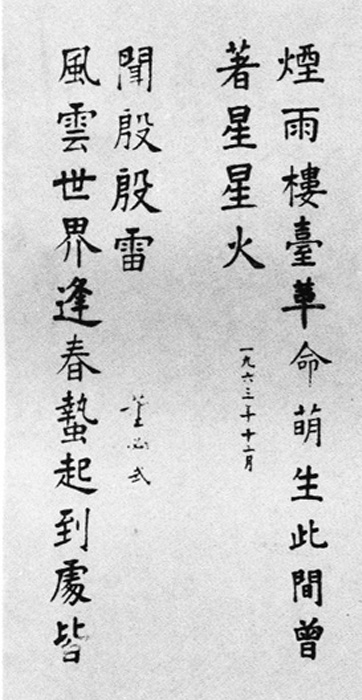 煙雨樓臺革命萌生此間曾
著星星火
一九六三年十二月
風雲世界逢春蟄起到處皆
聞殷殷雷
董必武